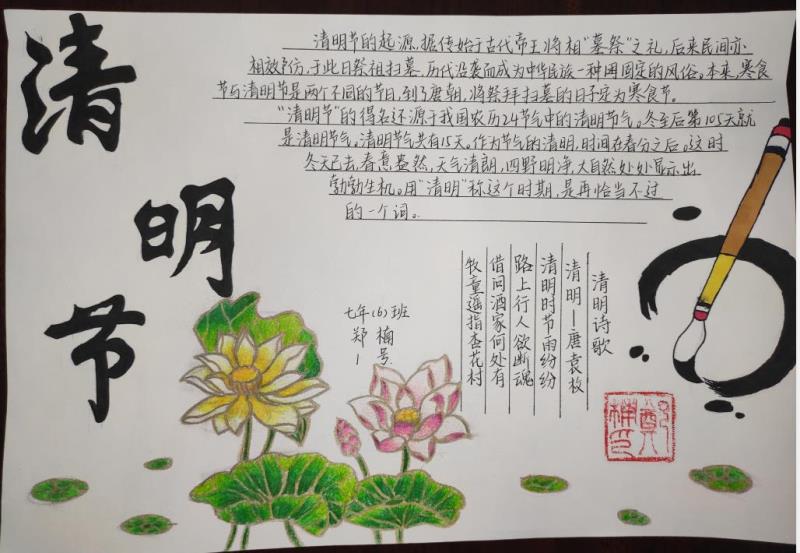 清明节
清明节的起源,据传始于古代帝王将相“墓祭”之礼,后来民间亦
相放仿,于此日祭祖扫墓,历代沿袭而成为中华民族一种固定的风俗。本来,寒食
节与清明节是两个不同的节日,到了唐朝,将祭拜扫墓的日子定为寒食节。
“清明节”的得名还源于我国农历24节气中的清明节气。冬至后第105天就
是清明节气,清明节气共有15天。作为节气的清明,时间在春分之后。这时
冬天已去,春意盎然,天气清朗,四野明净,大自然处处显示出
勃勃生机。用“清明”称这个时期,是再恰当不过
的一个词。
清明诗歌
清明—唐袁枚
清明时节雨纷纷
路上行人欲断魂
借问酒家何处有
牧童遥指杏花村
七年(6)班
郑楠
1号